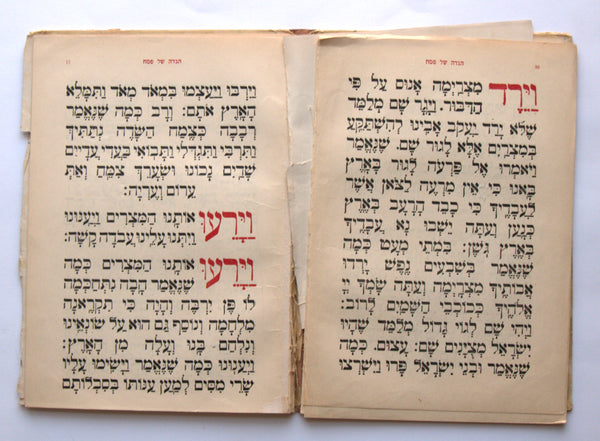 הגדה של פסח
וַיֵּרֶד מִצְרַיְמָה אָנוּס עַל פִּי
הַדִּבּוּר. וַיָּגָר שָׁם מְלַמֵּד
שֶׁלֹּא יָרַד יַעֲקֹב אָבִינוּ לְהִשְׁתַּקֵּעַ
בְּמִצְרַיִם אֶלָּא לָגוּר שָׁם. שֶׁנֶּאֱמַר
וַיֹּאמְרוּ אֶל פַּרְעֹה לָגוּר בָּאָרֶץ
בָּאנוּ כִּי אֵין מִרְעֶה לַצֹּאן אֲשֶׁר
לַעֲבָדֶיךָ כִּי כָבֵד הָרָעָב בְּאֶרֶץ
כְּנַעַן וְעַתָּה יֵשְׁבוּ נָא עֲבָדֶיךָ
בְּאֶרֶץ גֹּשֶׁן: בִּמְתֵי מְעָט כְּמָה
שֶׁנֶּאֱמַר בְּשִׁבְעִים נֶפֶשׁ יָרְדוּ
אֲבוֹתֶיךָ מִצְרָיְמָה וְעַתָּה שָׂמְךָ יְיָ
אֱלֹהֶיךָ כְּכוֹכְבֵי הַשָּׁמַיִם לָרוֹב:
וַיְהִי שָׁם לְגוֹי גָּדוֹל מְלַמֵּד שֶׁהָיוּ
יִשְׂרָאֵל מְצֻיָּנִים שָׁם: עָצוּם. כְּמָה
שֶׁנֶּאֱמַר וּבְנֵי יִשְׂרָאֵל פָּרוּ וַיִּשְׁרְצוּ
הגדה של פסח
וַיִּרְבּוּ וַיַּעַצְמוּ בִּמְאֹד מְאֹד וַתִּמָּלֵא
הָאָרֶץ אֹתָם: וָרָב כְּמָה שֶׁנֶּאֱמַר
רְבָבָה כְּצֶמַח הַשָּׂדֶה נְתַתִּיךְ
וַתִּרְבִּי וַתִּגְדְּלִי וַתָּבוֹאִי בַּעֲדִי עֲדָיִים
שָׁדַיִם נָכוֹנוּ וּשְׂעָרֵךְ צִמֵּחַ וְאַתְּ
עֵרוֹם וְעֶרְיָה:
וַיָּרֵעוּ אוֹתָנוּ הַמִּצְרִים וַיְעַנּוּנוּ
וַיִּתְּנוּ עָלֵינוּ עֲבֹדָה קָשָׁה:
וַיָּרֵעוּ אוֹתָנוּ הַמִּצְרִים כְּמָה
שֶׁנֶּאֱמַר הָבָה נִתְחַכְּמָה
לוֹ פֶּן יִרְבֶּה וְהָיָה כִּי תִקְרֶאנָה
מִלְחָמָה וְנוֹסַף גַּם הוּא עַל שׂוֹנְאֵינוּ
וְנִלְחַם בָּנוּ וְעָלָה מִן הָאָרֶץ:
וַיְעַנּוּנוּ כְּמָה שֶׁנֶּאֱמַר וַיָּשִׂימוּ עָלָיו
שָׂרֵי מִסִּים לְמַעַן עַנּוֹתוֹ בְּסִבְלוֹתָם